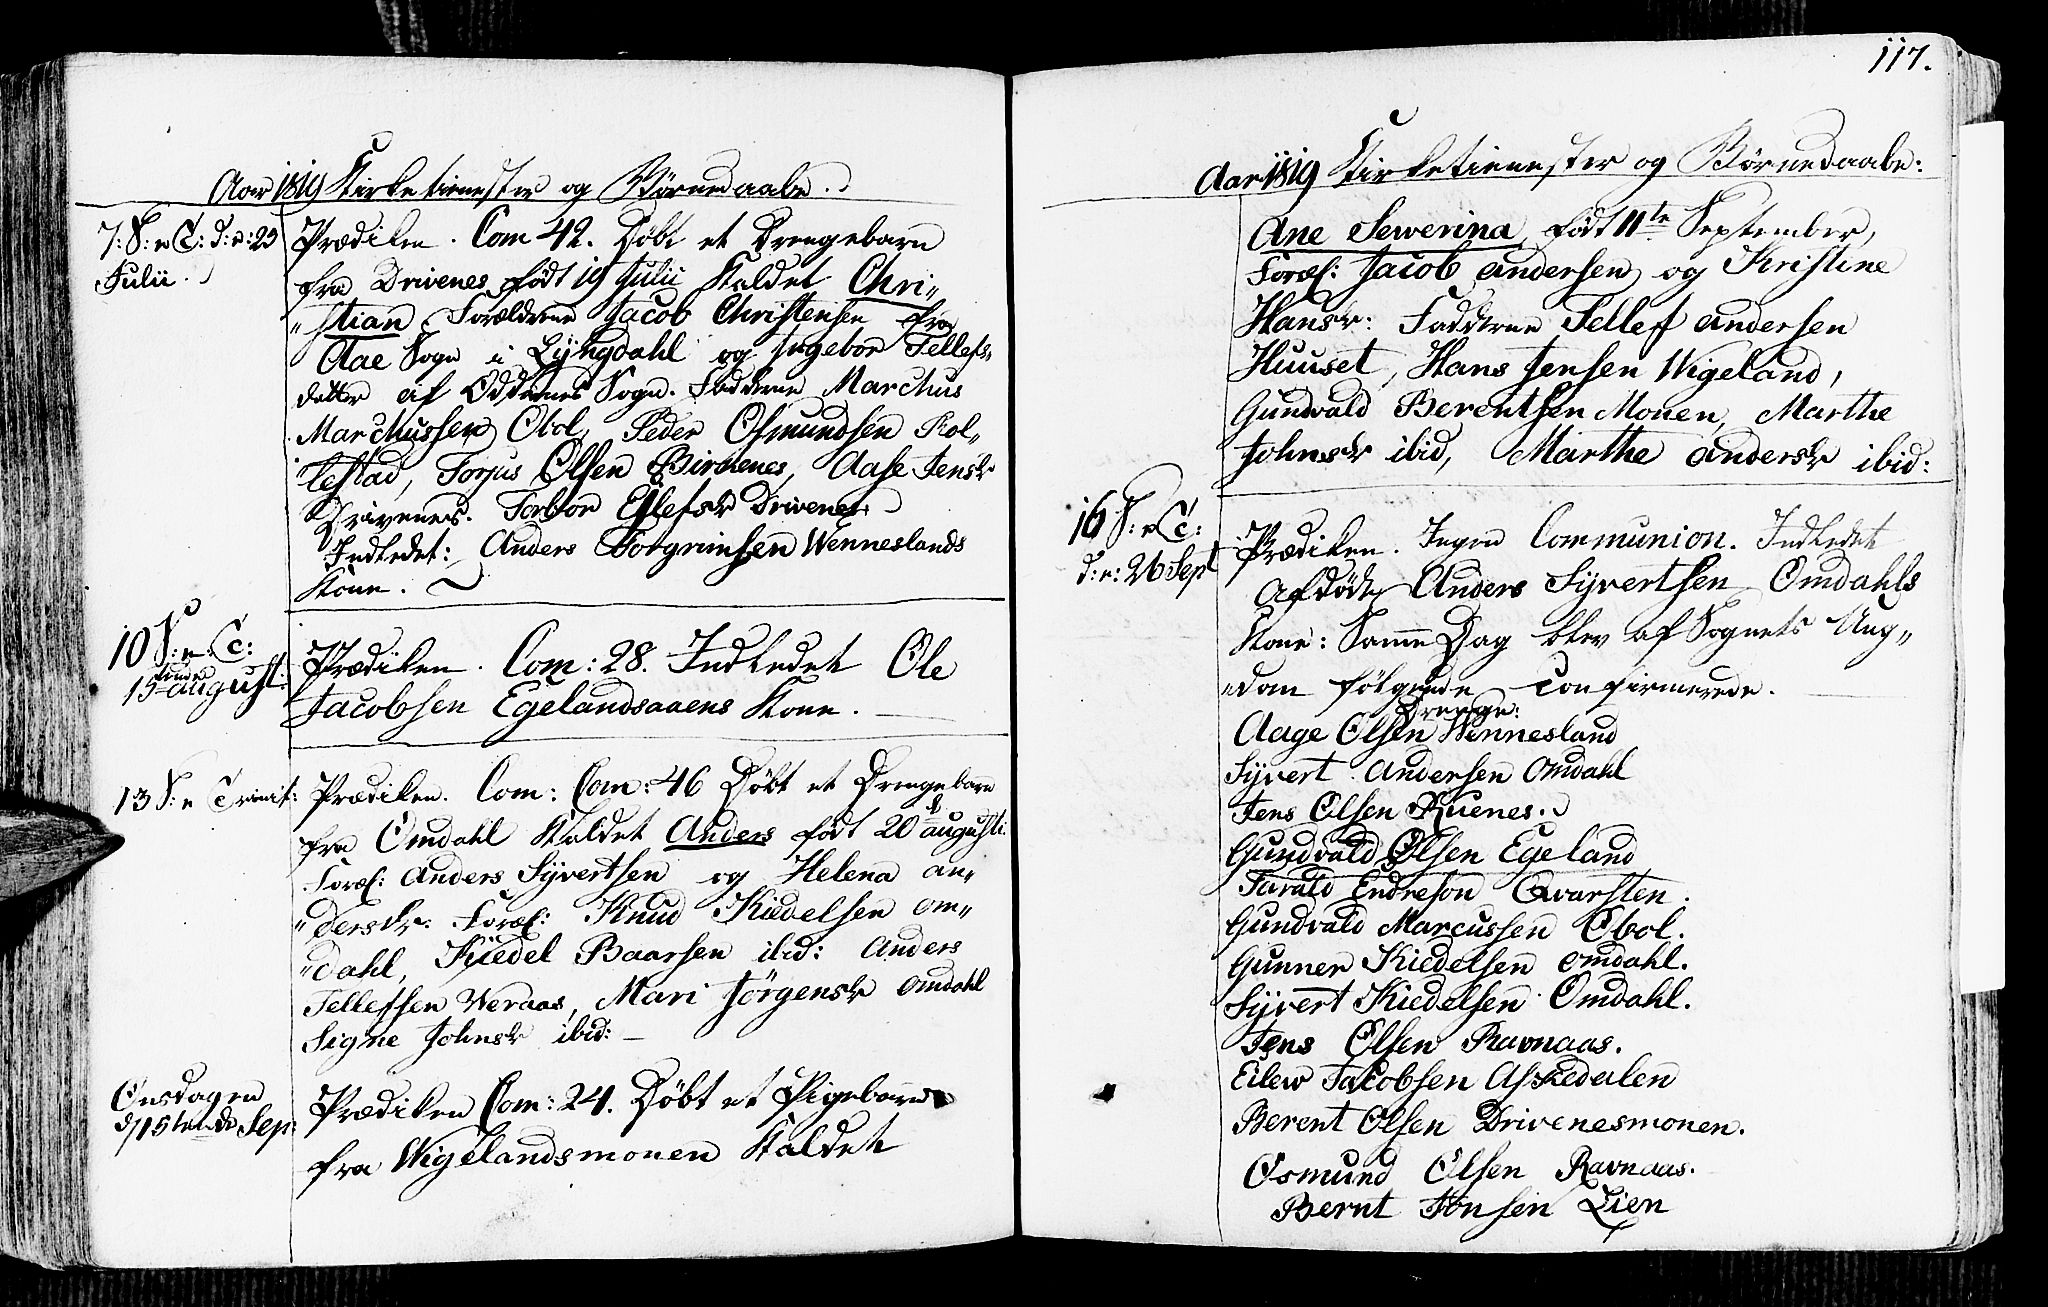 Aar 1819 Kirketienester og Børnedaabe.
7: S: e T: d: e: 25
Julii.
Prædiken. Com 42. Døbt et Drengebarn
fra Drivenes født 19 Julii Kaldet Chri„
„stian Forældrene Jacob Christensen fra
Aae Sogn i Lÿngdahl og Ingebor Tellefs„
datter af Oddernes Sogn. Fadderne Marchus
Marchussen Obol, Peder Osmundsen Rol„
lestad, Torjus Olsen Birchenes, Aase Jensdr
Drivenes. Torbor Ellefsdr Drivenes
Indledet: Anders Torgrimsen Wenneslands
Kone.
10 S: e. T:
15 august:
Prædiken. Com: 28. Indledet Ole
Jacobsen Egelandsaaens Kone.
13 S: e Trinit:
Prædiken. Com: Com: 46 Døbt et Drengebarn
fra Omdahl Kaldet Anders født 20 augusti
Foræl: Anders Sÿvertsen og Helena an„
„dersdr. Foræl: Knud Kiedelsen om„
„dahl, Kiedel Baarsen ibid: Anders
Tellefsen Weraas, Mari Jørgensdr omdahl
Signe Johnsdr ibid:
Onsdagen
d 15tende Sep:
Prædiken Com: 24. Døbt et Pigebarn
fra Wigelandsmonen Kaldet
117.
Aar 1819 Kirketienester og Børnedaabe:
Ane Sewerina, født 11te September,
Foræl: Jacob andersen og Kristine
Hansdr: Fadderne Tellef andersen
Huuset, Hans Jensen Wigeland,
Gundvald Berentsen Monen, Marthe
Johnsdr ibid, Marthe andersdr ibid:
16 S: e T:
d: e: 26 Sept
Prædiken. Ingen Communion. Indledet
Afdøde Anders Sÿvertsen Omdahls
Kone: Samme Dag blev af Sognets Ung„
„dom følgende Confirmerede.
Drenge:
Aage Olsen Wennesland
Sÿvert Andersen Omdahl
Jens Olsen Ruenes.
Gundvald Olsen Egeland
Tarald Endreson Qvarsten.
Gundvald Marcussen Obol.
Gunner Kiedelsen omdahl.
Sÿvert Kiedelsen Omdahl.
Jens Olsen Ravnaas.
Eilew Jacobsen Askedalen
Berent Olsen Drivenesmonen.
Osmund Olsen Ravnaas.
Bernt Jonsen Lien